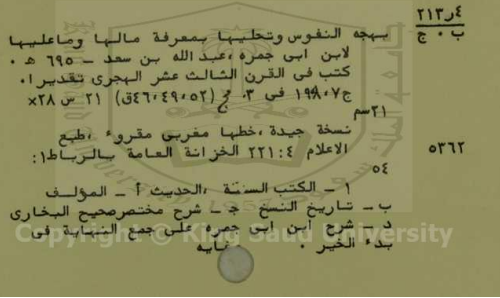 ٢١٣ر٤
ب ٠ ج
بهجه النفوس وتحليها بمعرفة مالها وماعليها
لابن ابى جمره ،عبدالله بن سعد ـ ٦٩٥ ه ٠
كتب فى القرن الثالث عشر الهجرى تقديرا ٠
ج٧، فى ٣ (٤٦،٤٩،٥٢ق) ٢١ س ٢٨×
٢١سم
نسخة جيدة ،خطها مغربى مقروء ،طبع
٥٣٦٢
الاعلام ٢٢١:٤ الخزانة العامة بالرباط١:
٥٤
١ ـ الكتب الستة ،الحديث أ ـ المؤلف
ب ـ تاريخ النسخ ج ـ شرح مختصرصحيح البخارى
د ـ شرح ابن ابى جمره على جمع النهاية فى
بدء الخير ٠ غايه
Copyright © King Saud University